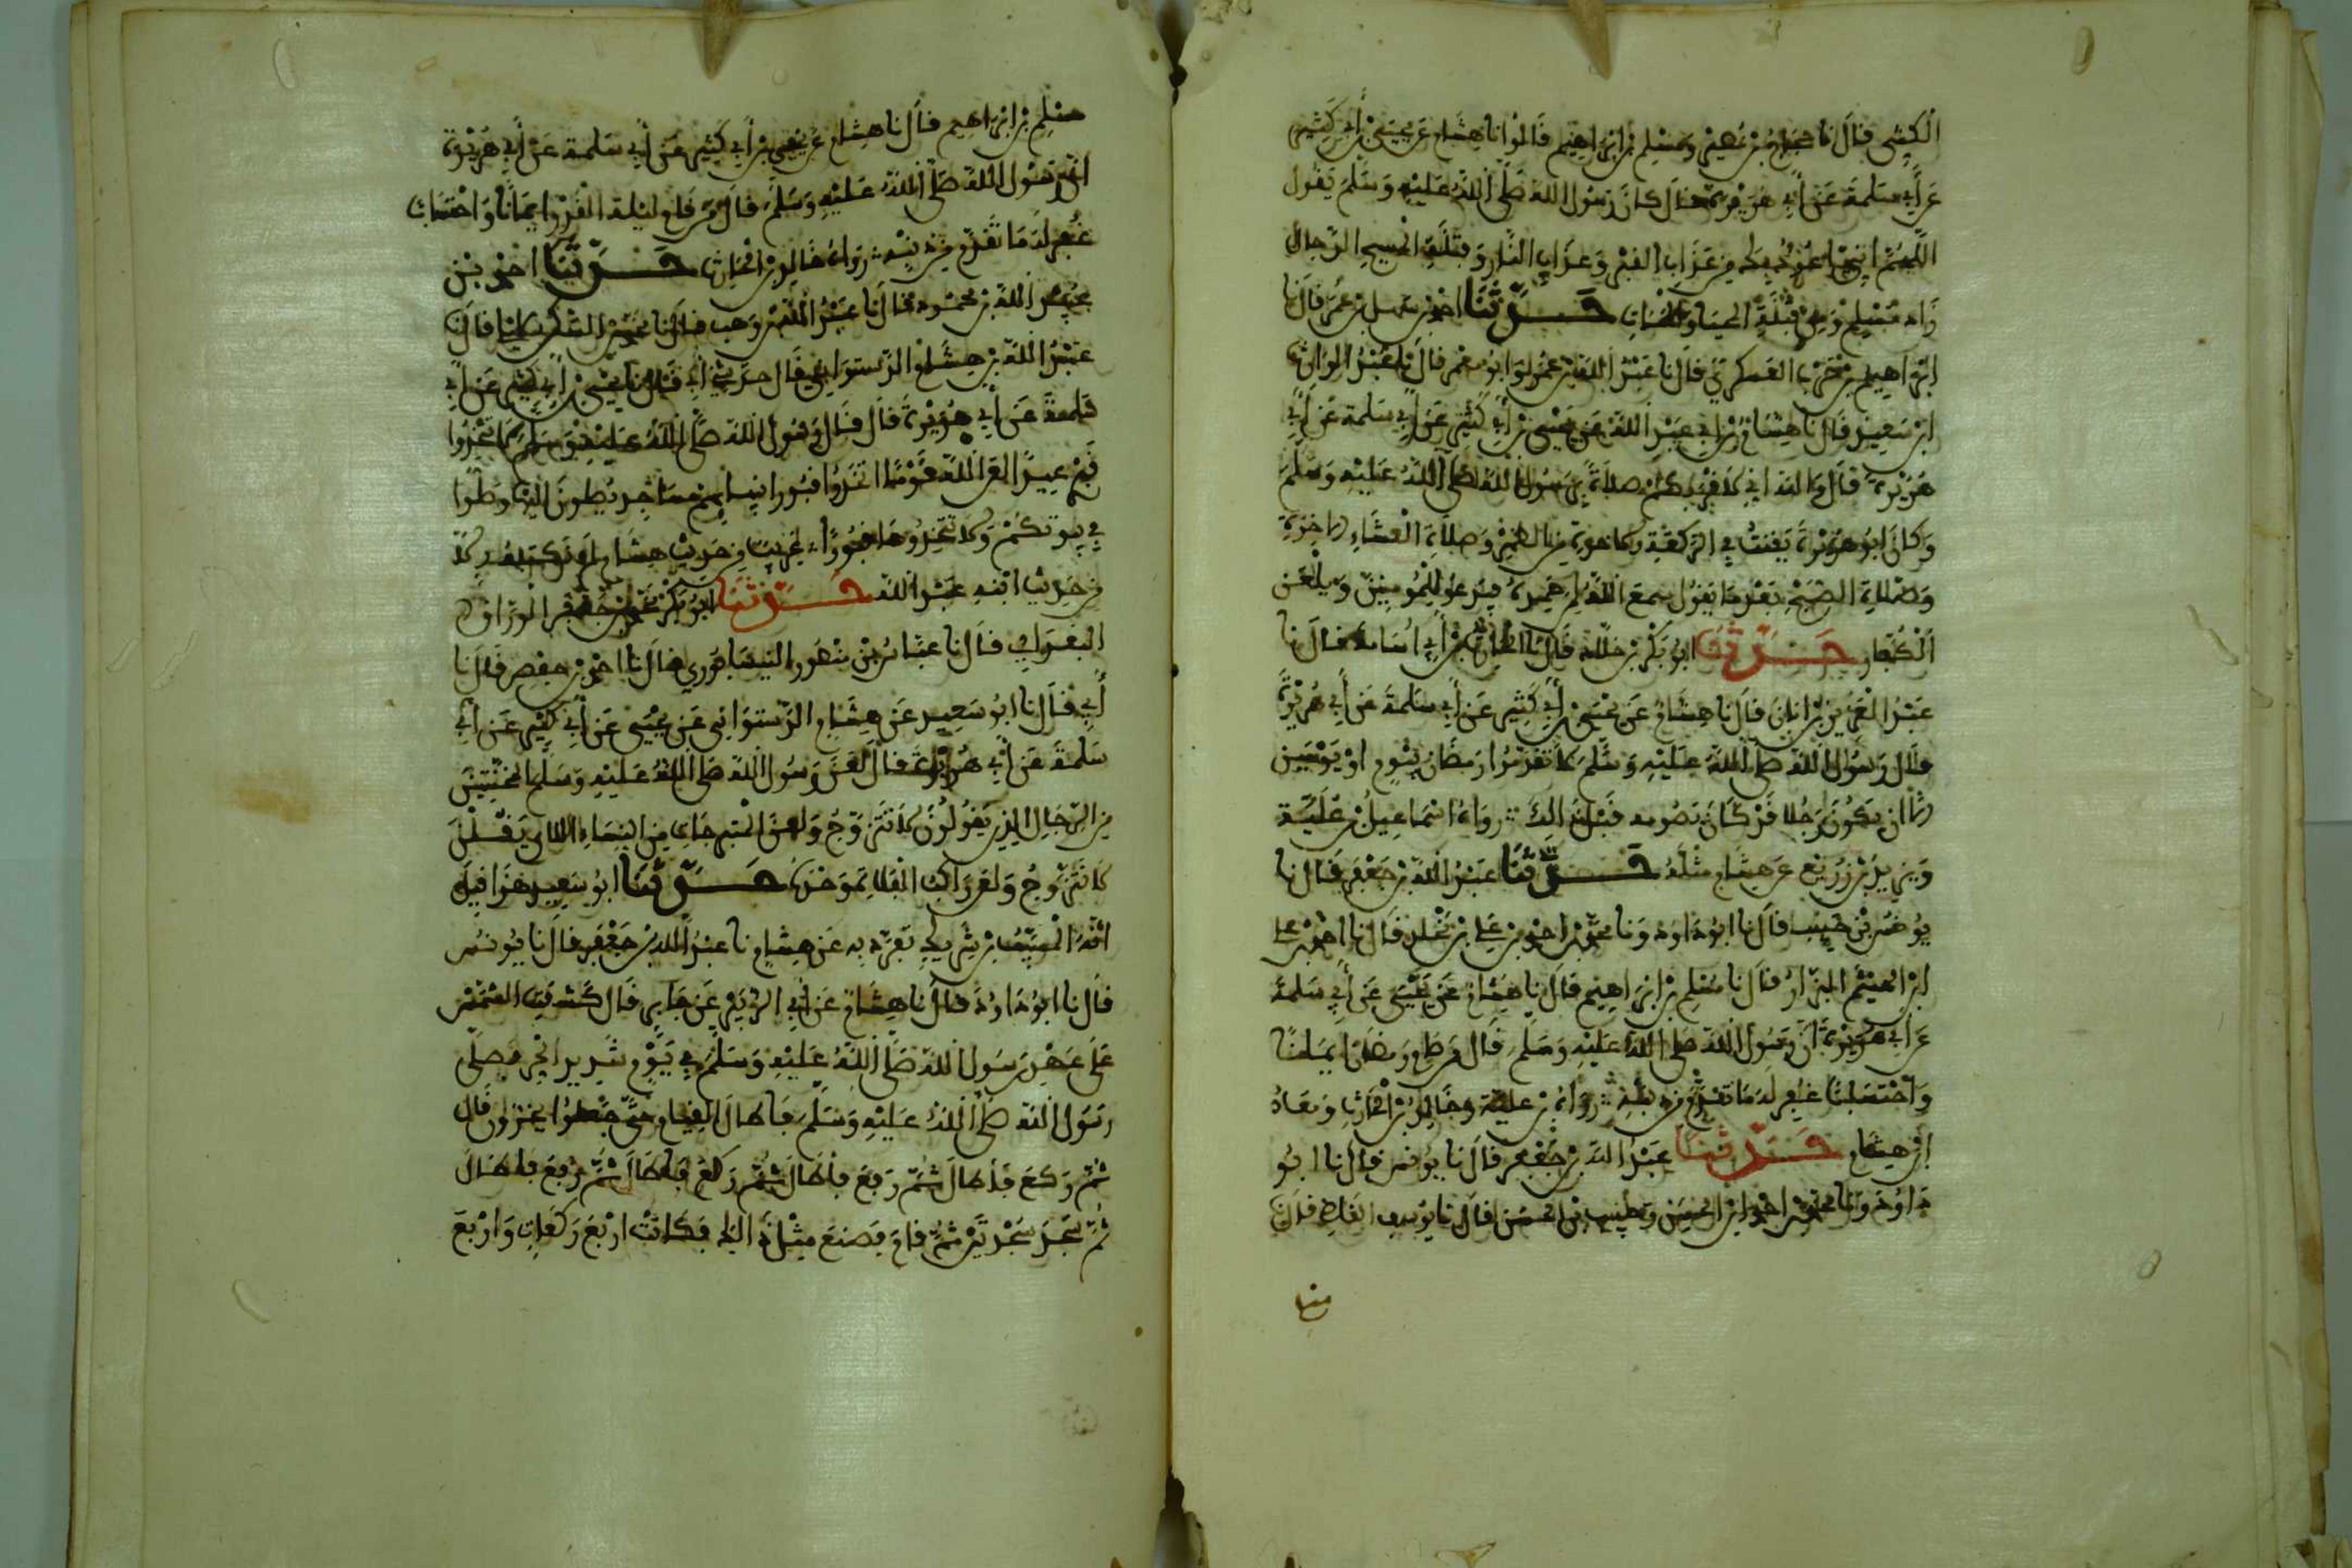 الكشي قال نا حجاج بن نصير ومسلم بن ابراهيم قالوا نا هشام عن يحيى بن أبي كثير
عن أبي سلمة عن أبي هريرة قال كان رسول الله صلى الله عليه وسلم يقول
اللهم اني اعوذ بك من عذاب القبر وعذاب النار وفتنة المسيح الدجال
زاد مسلم ومن فتنة المحيا والممات حدثنا احمد بن سهل بن عمر قال نا
ابراهيم بن حرب العسكري قال نا عبد الله بن عمرو ابو معمر قال نا عبد الوارث
ابن سعيد قال نا هشام بن أبي عبد الله عن يحيى بن أبي كثير عن أبي سلمة عن أبي
هريرة قال والله اني لاقربكم صلاة برسول الله صلى الله عليه وسلم
وكان ابو هريرة يقنت في الركعة الاخرة من الظهر وصلاة العشاء الاخرة
وصلاة الصبح بعد ما يقول سمع الله لمن حمده فيدعو للمومنين ويلعن
الكفار حدثنا ابو بكر بن خلاد قال نا الحارث بن أبي اسامة قال نا
عبد العزيز بن ابان قال نا هشام عن يحيى بن أبي كثير عن أبي سلمة عن أبي هريرة
قال رسول الله صلى الله عليه وسلم لا تقدموا رمضان بيوم او يومين
الا ان يكون رجلا قد كان يصومه قبل ذالك رواه اسماعيل بن علية
ويزيد بن زريع عن هشام مثله حدثنا عبد الله بن جعفر قال نا
يونس بن حبيب قال نا ابو داود ونا محمد بن احمد بن علي بن مخلد قال نا احمد بن علي
ابن الهيثم البزار قال نا مسلم بن ابراهيم قال نا هشام عن يحيى عن أبي سلمة
عن أبي هريرة أن رسول الله صلى الله عليه وسلم قال من صام رمضان ايمانا
واحتسابا غفر له ما تقدم من ذنبه رواه بن علية وخالد بن الحارث ومعاذ
ابن هشام حدثنا عبد الله بن جعفر قال نا يونس قال نا ابو
داود ونا محمد بن احمد ابن الحسين وحبيب بن الحسن قالا نا يوسف القاضي قال نا
مسلم بن ابراهيم قال نا هشام عن يحيى بن أبي كثير عن أبي سلمة عن أبي هريرة
أن رسول الله صلى الله عليه وسلم قال من قام ليلة القدر ايمانا واحتسابا
غفر له ما تقدم من ذنبه رواه خالد بن الحارث حدثنا احمد بن
عبيد الله بن محمود قال نا عبد الله بن وهب قال نا محمد بن العسكري قال نا
عبد الله بن هشام الدستوايي قال حدثني أبي قال نا يحيى بن أبي كثير عن أبي
سلمة عن أبي هريرة قال قال رسول الله صلى الله عليه وسلم لا تتخذوا
قبري عيدا لعن الله قوما اتخذوا قبور انبيايهم مساجد يصلون اليها وصلوا
في بيوتكم ولا تتخذوها قبورا غريب من حديث هشام لم نكتبه الا
من حديث ابنه عبد الله حدثنا ابو بكر محمد بن جعفر الوراق
البغدادي قال نا عباس بن منصور النيسابوري قال نا احمد بن حفص قال نا
أبي قال نا ابو سعيد عن هشام الدستوايي عن يحيى عن أبي كثير عن أبي
سلمة عن أبي هريرة قال لعن رسول الله صلى الله عليه وسلم المخنثين
من الرجال الذين يقولون لا نتزوج ولعن المتبرجات من النساء اللاتي يقلن
لا نتزوج ولعن راكب الفلاة وحده حدثنا ابو سعيد هذا قيل
انه المسيب بن شريك تفرد به عن هشام نا عبد الله بن جعفر قال نا يونس
قال نا ابو داود قال نا هشام عن أبي الزبير عن جابر قال كسفت الشمس
على عهد رسول الله صلى الله عليه وسلم في يوم شديد الحر فصلى
رسول الله صلى الله عليه وسلم فاطال القيام حتى جعلوا يخرون قال
ثم ركع فأطال ثم رفع فأطال ثم ركع فأطال ثم رفع فأطال
ثم سجد سجدتين ثم قام فصنع مثل ذالك فكانت اربع ركعات واربع
منها